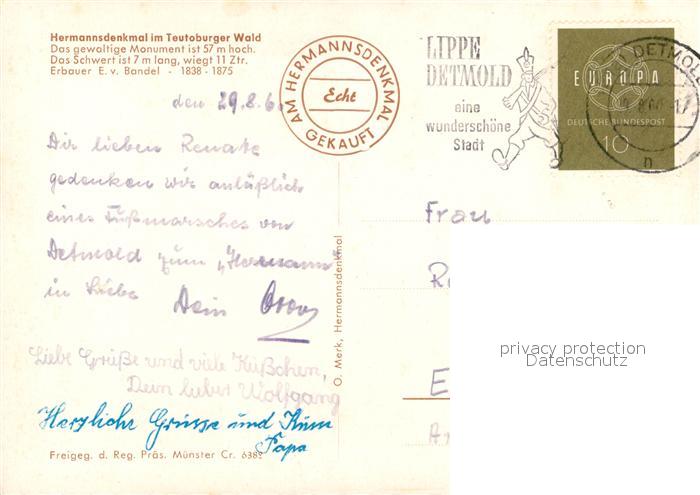 Hermannsdenkmal im Teutoburger Wald
Das gewaltige Monument ist 57 m hoch.
Das Schwert ist 7 m lang, wiegt 11 Ztr.
Erbauer E. v. Bandel - 1838 - 1875
AM HERMANNSDENKMAL
Echt
GEKAUFT
LIPPE
DETMOLD
eine
wunderschöne
Stadt
DETMOLD
EUROPA
DEUTSCHE BUNDESPOST
10
n
den 29.8.60
Dir lieben Renate
gedenken wir anläßlich
eines Fußmarsches von
Detmold zum „Hermann"
in Liebe Dein
Liebe Grüße und viele Küßchen,
Dein lieber Wolfgang
Herzliche Grüsse und Küsse
Papa
Freigeg. d. Reg. Präs. Münster Cr. 6382
O. Merk, Hermannsdenkmal
Frau
R
E
privacy protection
Datenschutz